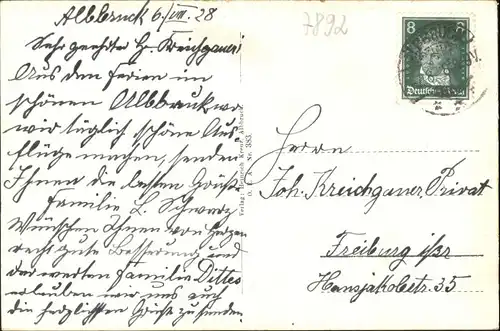 Albbruck 6./VIII. 28
Sehr geehrter Hr. Kreichgauer!
Aus den Ferien im
schönen Albbruck wo
wir täglich schöne Aus
flüge machen, senden
Ihnen die besten Grüße
Familie L. Schwarz
Wünschen Ihnen von Herzen
recht gute Besserung und
der werten Familie Dittes
erlauben wir uns auch
die herzlichsten Grüße zu senden
7892
8 8
Deutsches Reich
Verlag: Heinrich Kroner, Albbruck.
Nr. 383.
Herrn
Joh. Kreichgauer, Privat
Freiburg i/Br
Hansjakobstr. 35